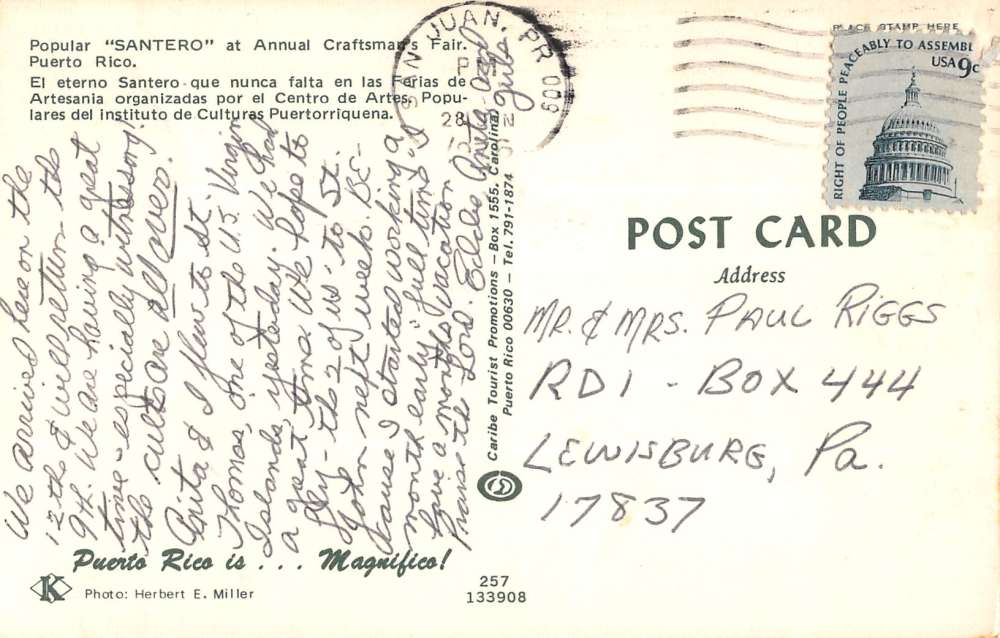 Popular "SANTERO" at Annual Craftsman's Fair.
Puerto Rico.
El eterno Santero que nunca falta en las Ferias de
Artesania organizadas por el Centro de Artes Popu-
lares del Instituto de Culturas Puertorriquena.
SAN JUAN, PR 009
PM
28
PLACE STAMP HERE
RIGHT OF PEOPLE PEACEABLY TO ASSEMBLE
USA 9c
We arrived here on the
12th & will return the
9th. We are having a great
time - especially witnessing!
the cults are all over.
Anita & I flew to St.
Thomas, one of the U.S. Virgin
Islands, yesterday. We had
a great time. We hope to
fly - the 2 of us - to St.
John next week. BE-
cause I started working a
month early full time I
have a month's vacation
Praise the Lord. Eddie Anita
POST CARD
Address
MR. & MRS. PAUL RIGGS
RD1 - BOX 444
LEWISBURG, Pa.
17837
Caribe Tourist Promotions - Box 1555, Carolina,
Puerto Rico 00630 - Tel. 791-1874
Puerto Rico is . . . Magnifico!
K
Photo: Herbert E. Miller
257
133908